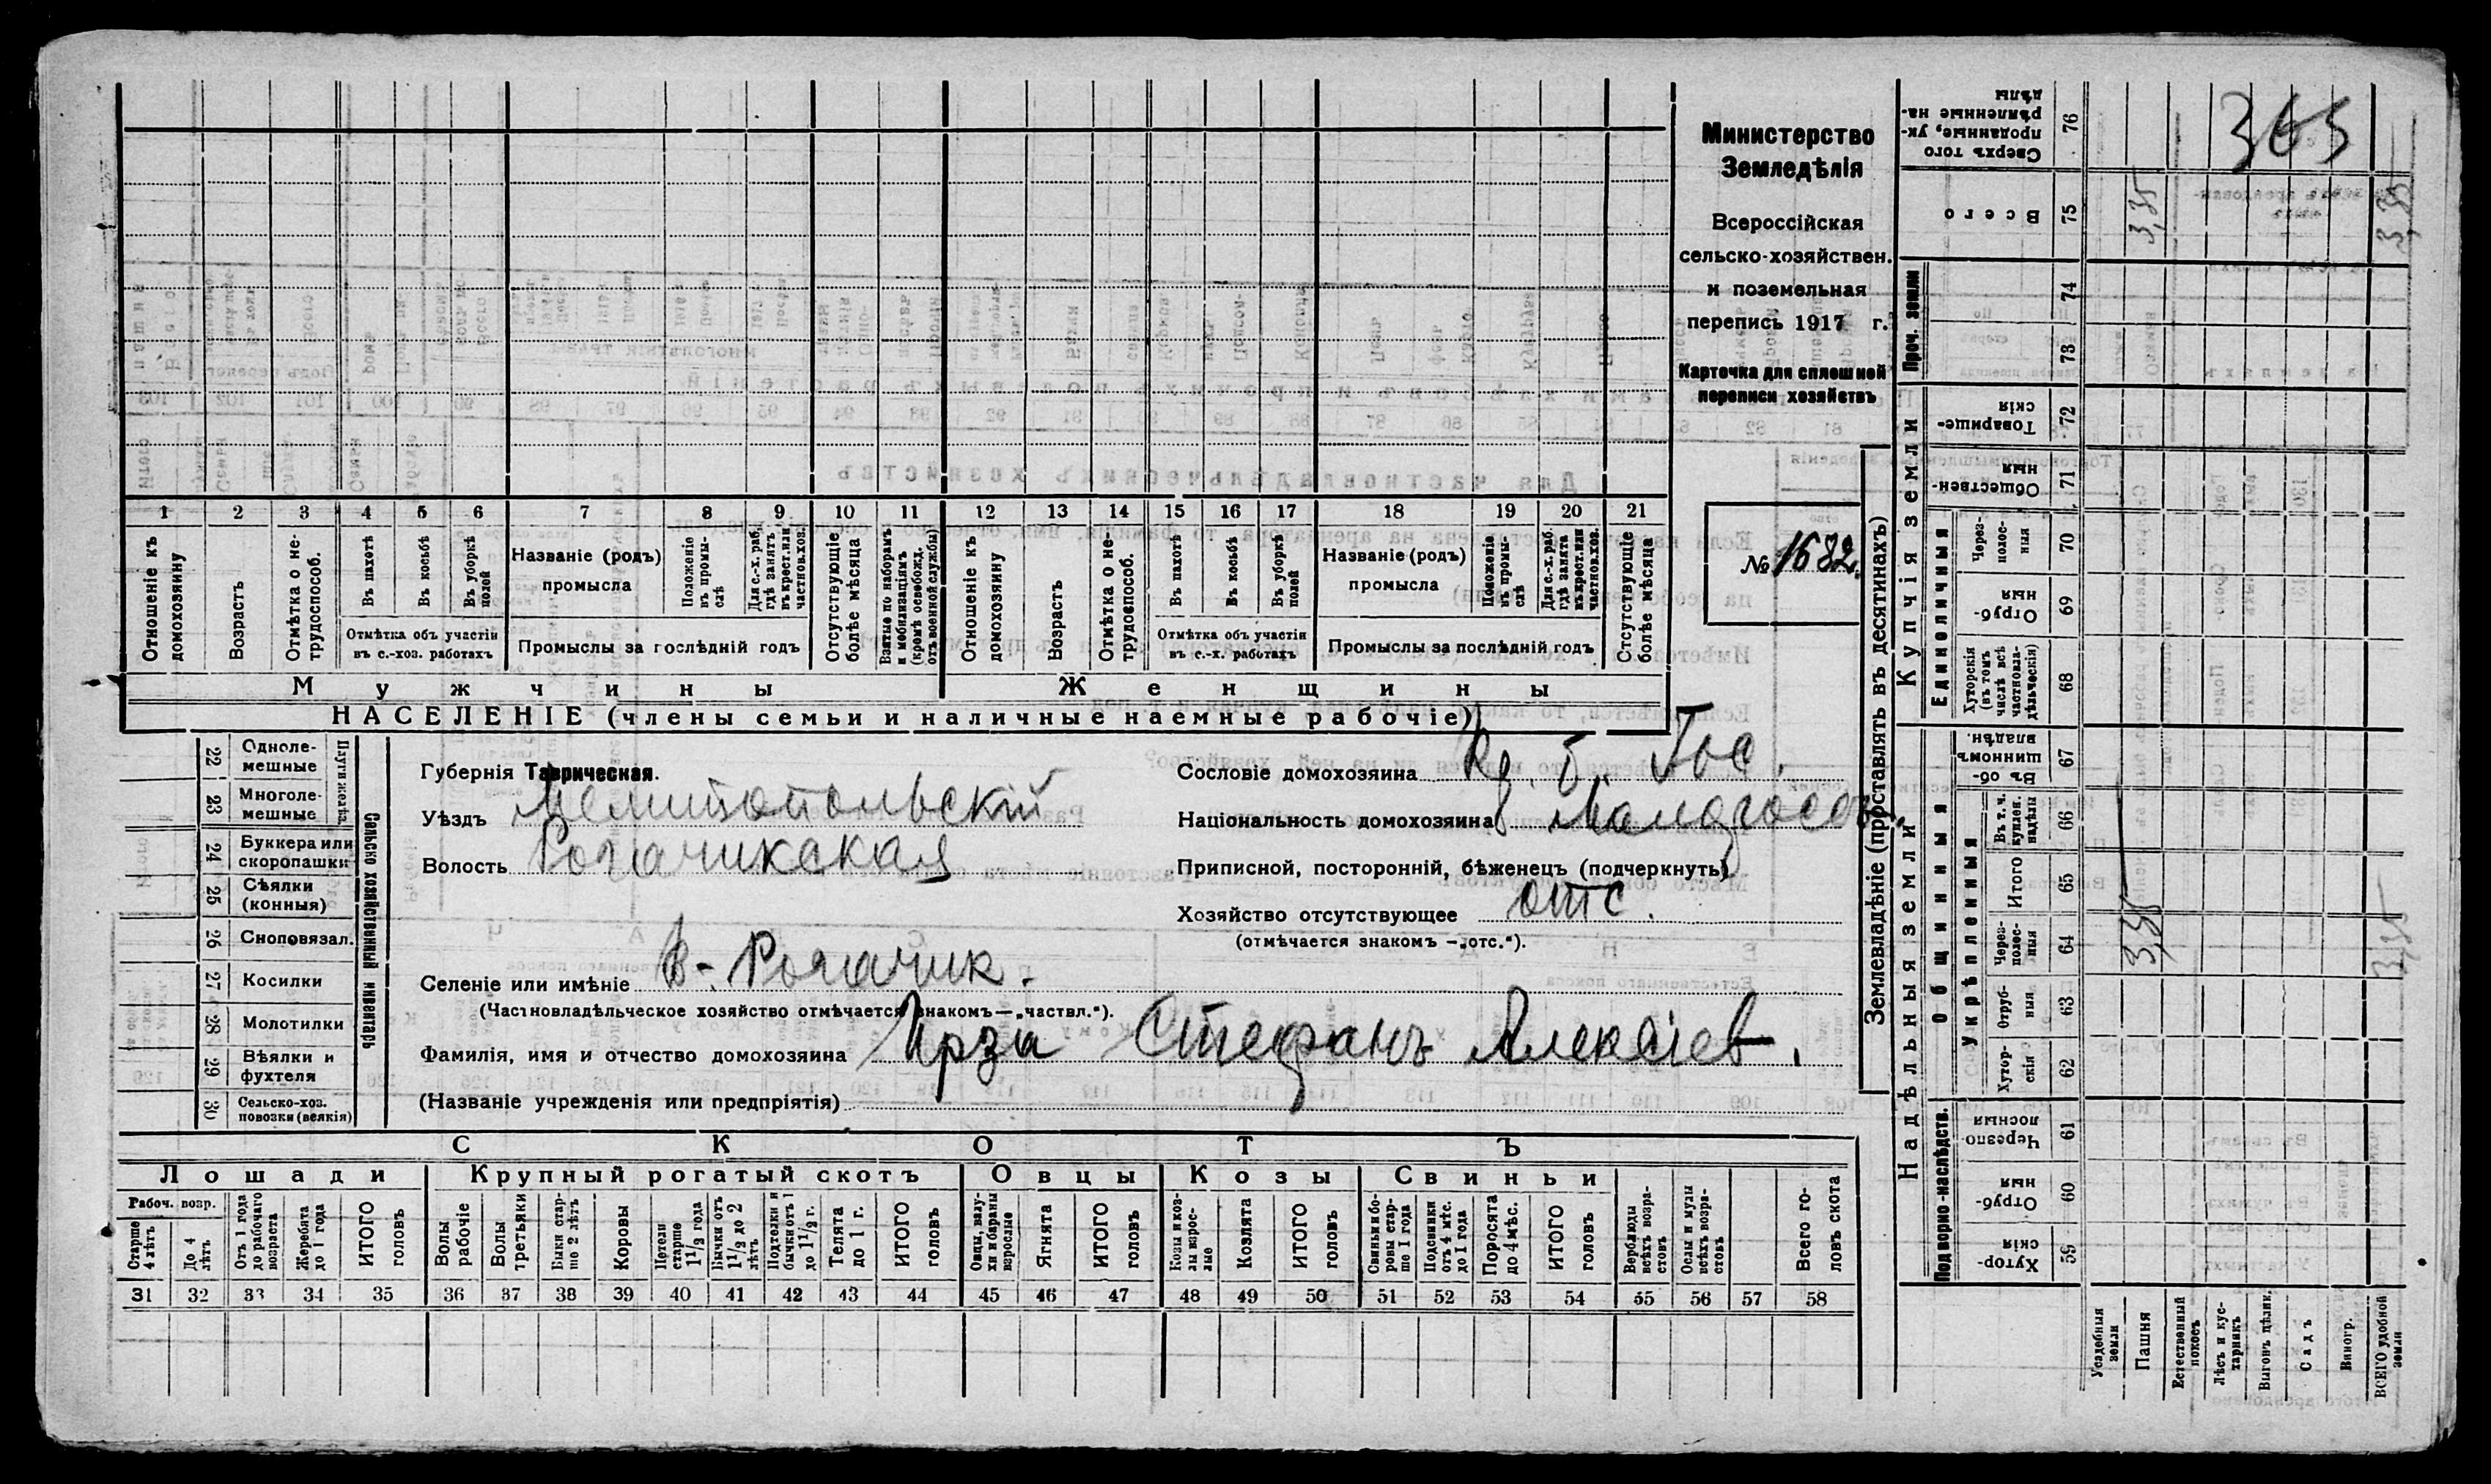 Министерство
Земледѣлія
Всероссійская
сельско-хозяйствен.
и поземельная
перепись 1917 г.
Карточка для сплошной
переписи хозяйствъ
№ 1682.
1 2 3 4 5 6 7 8 9 10 11 12 13 14 15 16 17 18 19 20 21
Отношеніе къ домохозяину
Возрастъ
Отмѣтка о не-трудоспособ.
Въ пахотѣ
Въ косьбѣ
Въ уборкѣ полей
Отмѣтка объ участіи
въ с.-хоз. работахъ
Названіе (родъ)
промысла
Положеніе въ промы-слѣ
Для с.-х. раб. гдѣ занятъ въ крест. или частнов. хоз.
Промыслы за послѣдній годъ
Отсутствующіе болѣе мѣсяца
Взятые по наборамъ и мобилизаціямъ (кромѣ освобожд. отъ военной службы)
Отношеніе къ домохозяину
Возрастъ
Отмѣтка о не-трудоспособ.
Въ пахотѣ
Въ косьбѣ
Въ уборкѣ полей
Отмѣтка объ участіи
въ с.-х. работахъ
Названіе (родъ)
промысла
Положеніе въ промы-слѣ
Для с.-х. раб. гдѣ занята въ крест. или частнов. хоз.
Промыслы за послѣдній годъ
Отсутствующіе болѣе мѣсяца
Мужчины Женщины
НАСЕЛЕНІЕ (члены семьи и наличные наемные рабочіе)
22 Одноле-мешные
23 Многоле-мешные
Плуги желѣз.
24 Буккера или скоропашки
25 Сѣялки (конныя)
26 Сноповязал.
27 Косилки
28 Молотилки
29 Вѣялки и фухтеля
30 Сельско-хоз. повозки (всякія)
Сельско хозяйственный инвентарь
Губернія Таврическая.
Уѣздъ Мелитопольскій
Волость Рогачикская
Селеніе или имѣніе В-Рогачик.
(Частновладѣльческое хозяйство отмѣчается знакомъ—„частвл.“).
Фамилія, имя и отчество домохозяина Ирза Стефанъ Алексѣев.
(Названіе учрежденія или предпріятія)
Сословіе домохозяина Кр. б. Гос.
Національность домохозяина Малоросс.
Приписной, посторонній, бѣженецъ (подчеркнуть)
Хозяйство отсутствующее отс.
(отмѣчается знакомъ —„отс.“).
СКОТЪ
Лошади Крупный рогатый скотъ Овцы Козы Свиньи
Рабоч. возр.
Старше 4 лѣтъ
До 4 лѣтъ
Отъ 1 года до рабочаго возраста
Жеребята до 1 года
ИТОГО головъ
Волы рабочіе
Волы третьяки
Быки стар-ше 2 лѣтъ
Коровы
Нетели старше 1½ года
Бычки отъ 1½ до 2 лѣтъ
Подтелки и бычки отъ 1 до 1½ г.
Телята до 1 г.
ИТОГО головъ
Овцы, валу-хи и бараны взрослые
Ягнята
ИТОГО головъ
Козы и коз-лы взрос-лые
Козлята
ИТОГО головъ
Свиньи и бо-ровы стар-ше 1 года
Подсвинки отъ 4 мѣс. до 1 года
Поросята до 4 мѣс.
ИТОГО головъ
Верблюды всѣхъ возра-стовъ
Ослы и мулы всѣхъ возра-стовъ
Всего го-ловъ скота
31 32 33 34 35 36 37 38 39 40 41 42 43 44 45 46 47 48 49 50 51 52 53 54 55 56 57 58
Землевладѣніе (проставлять въ десятинахъ)
Купчія земли
Надѣльныя земли
365
76 Сверхъ того проданные, ук-рѣпленные на-дѣлы
75 Всего 3,35 3,35
Проч. земли
74
73
72 Товарище-скія
71 Обществен-ныя
Единоличныя
70 Через-полос-ныя
69 Отруб-ныя
68 Хуторскія (въ томъ числѣ всѣ частновла-дѣльческія)
Общинныя
67 Въ об-щинномъ владѣн.
Укрѣпленныя
66 Въ т. ч. куплен. надѣлы
65 Итого
64 Через-полос-ныя 3,35 3,35
63 Отруб-ныя
62 Хутор-скія
Подворно-наслѣдств.
61 Черезпо-лосныя
60 Отруб-ныя
59 Хутор-скія
Усадебныя земли
Пашня
Естественный покосъ
Лѣсъ и кус-тарникъ
Выгонъ цѣлик.
Садъ
Виногр.
ВСЕГО удобной земли